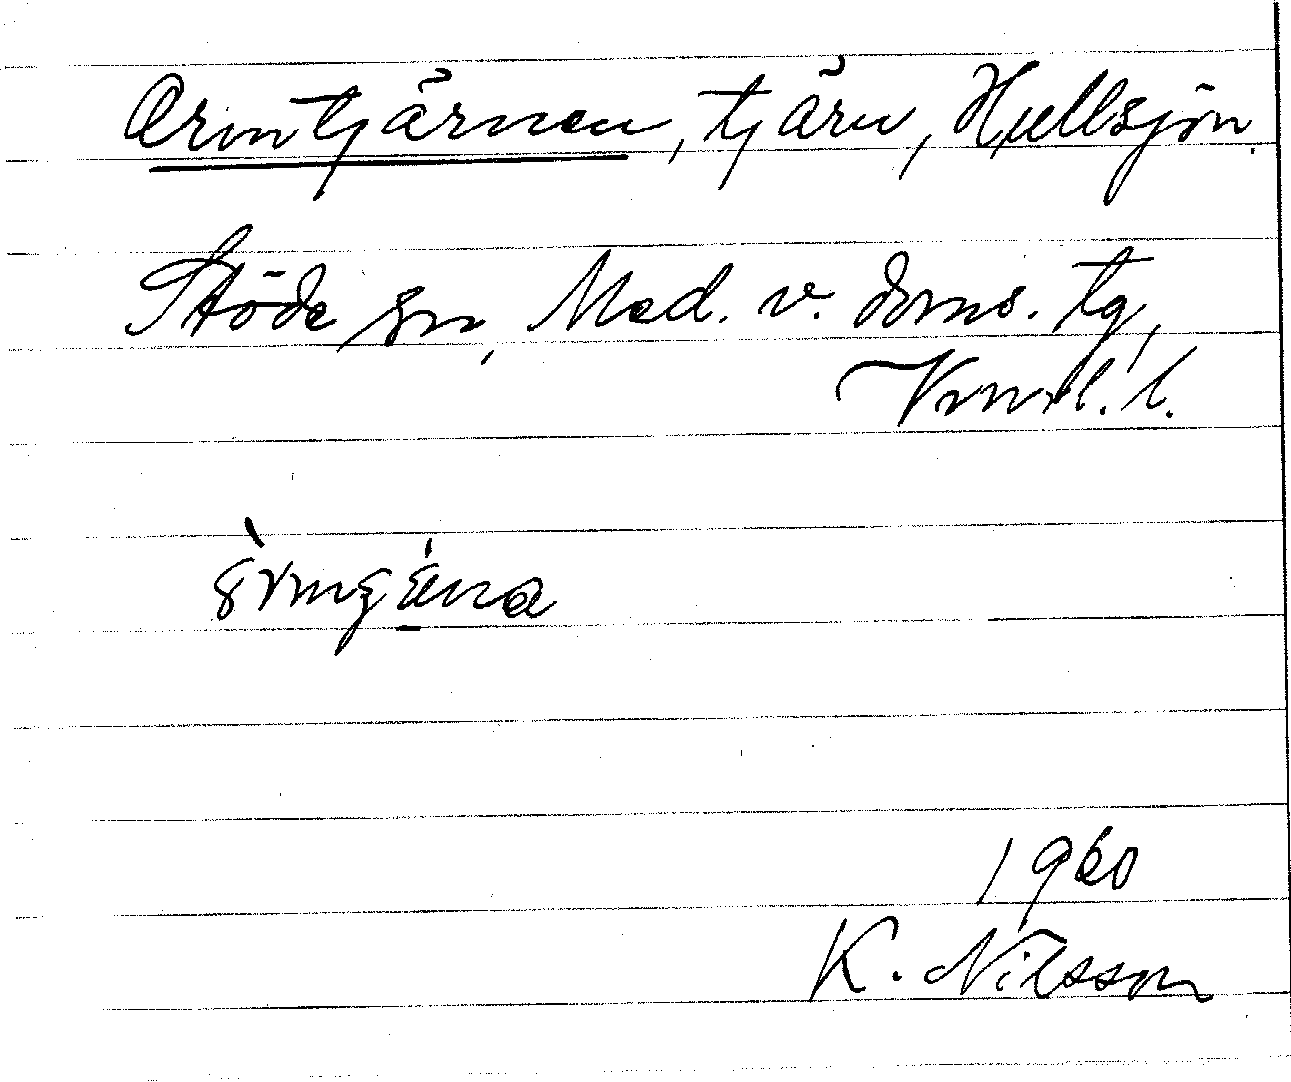 Ormtjärnen, tjärn, Hullsjön.
Stöde sn, Med. v. doms. tg,
Vnrl. l.
1960
K. Nilsson